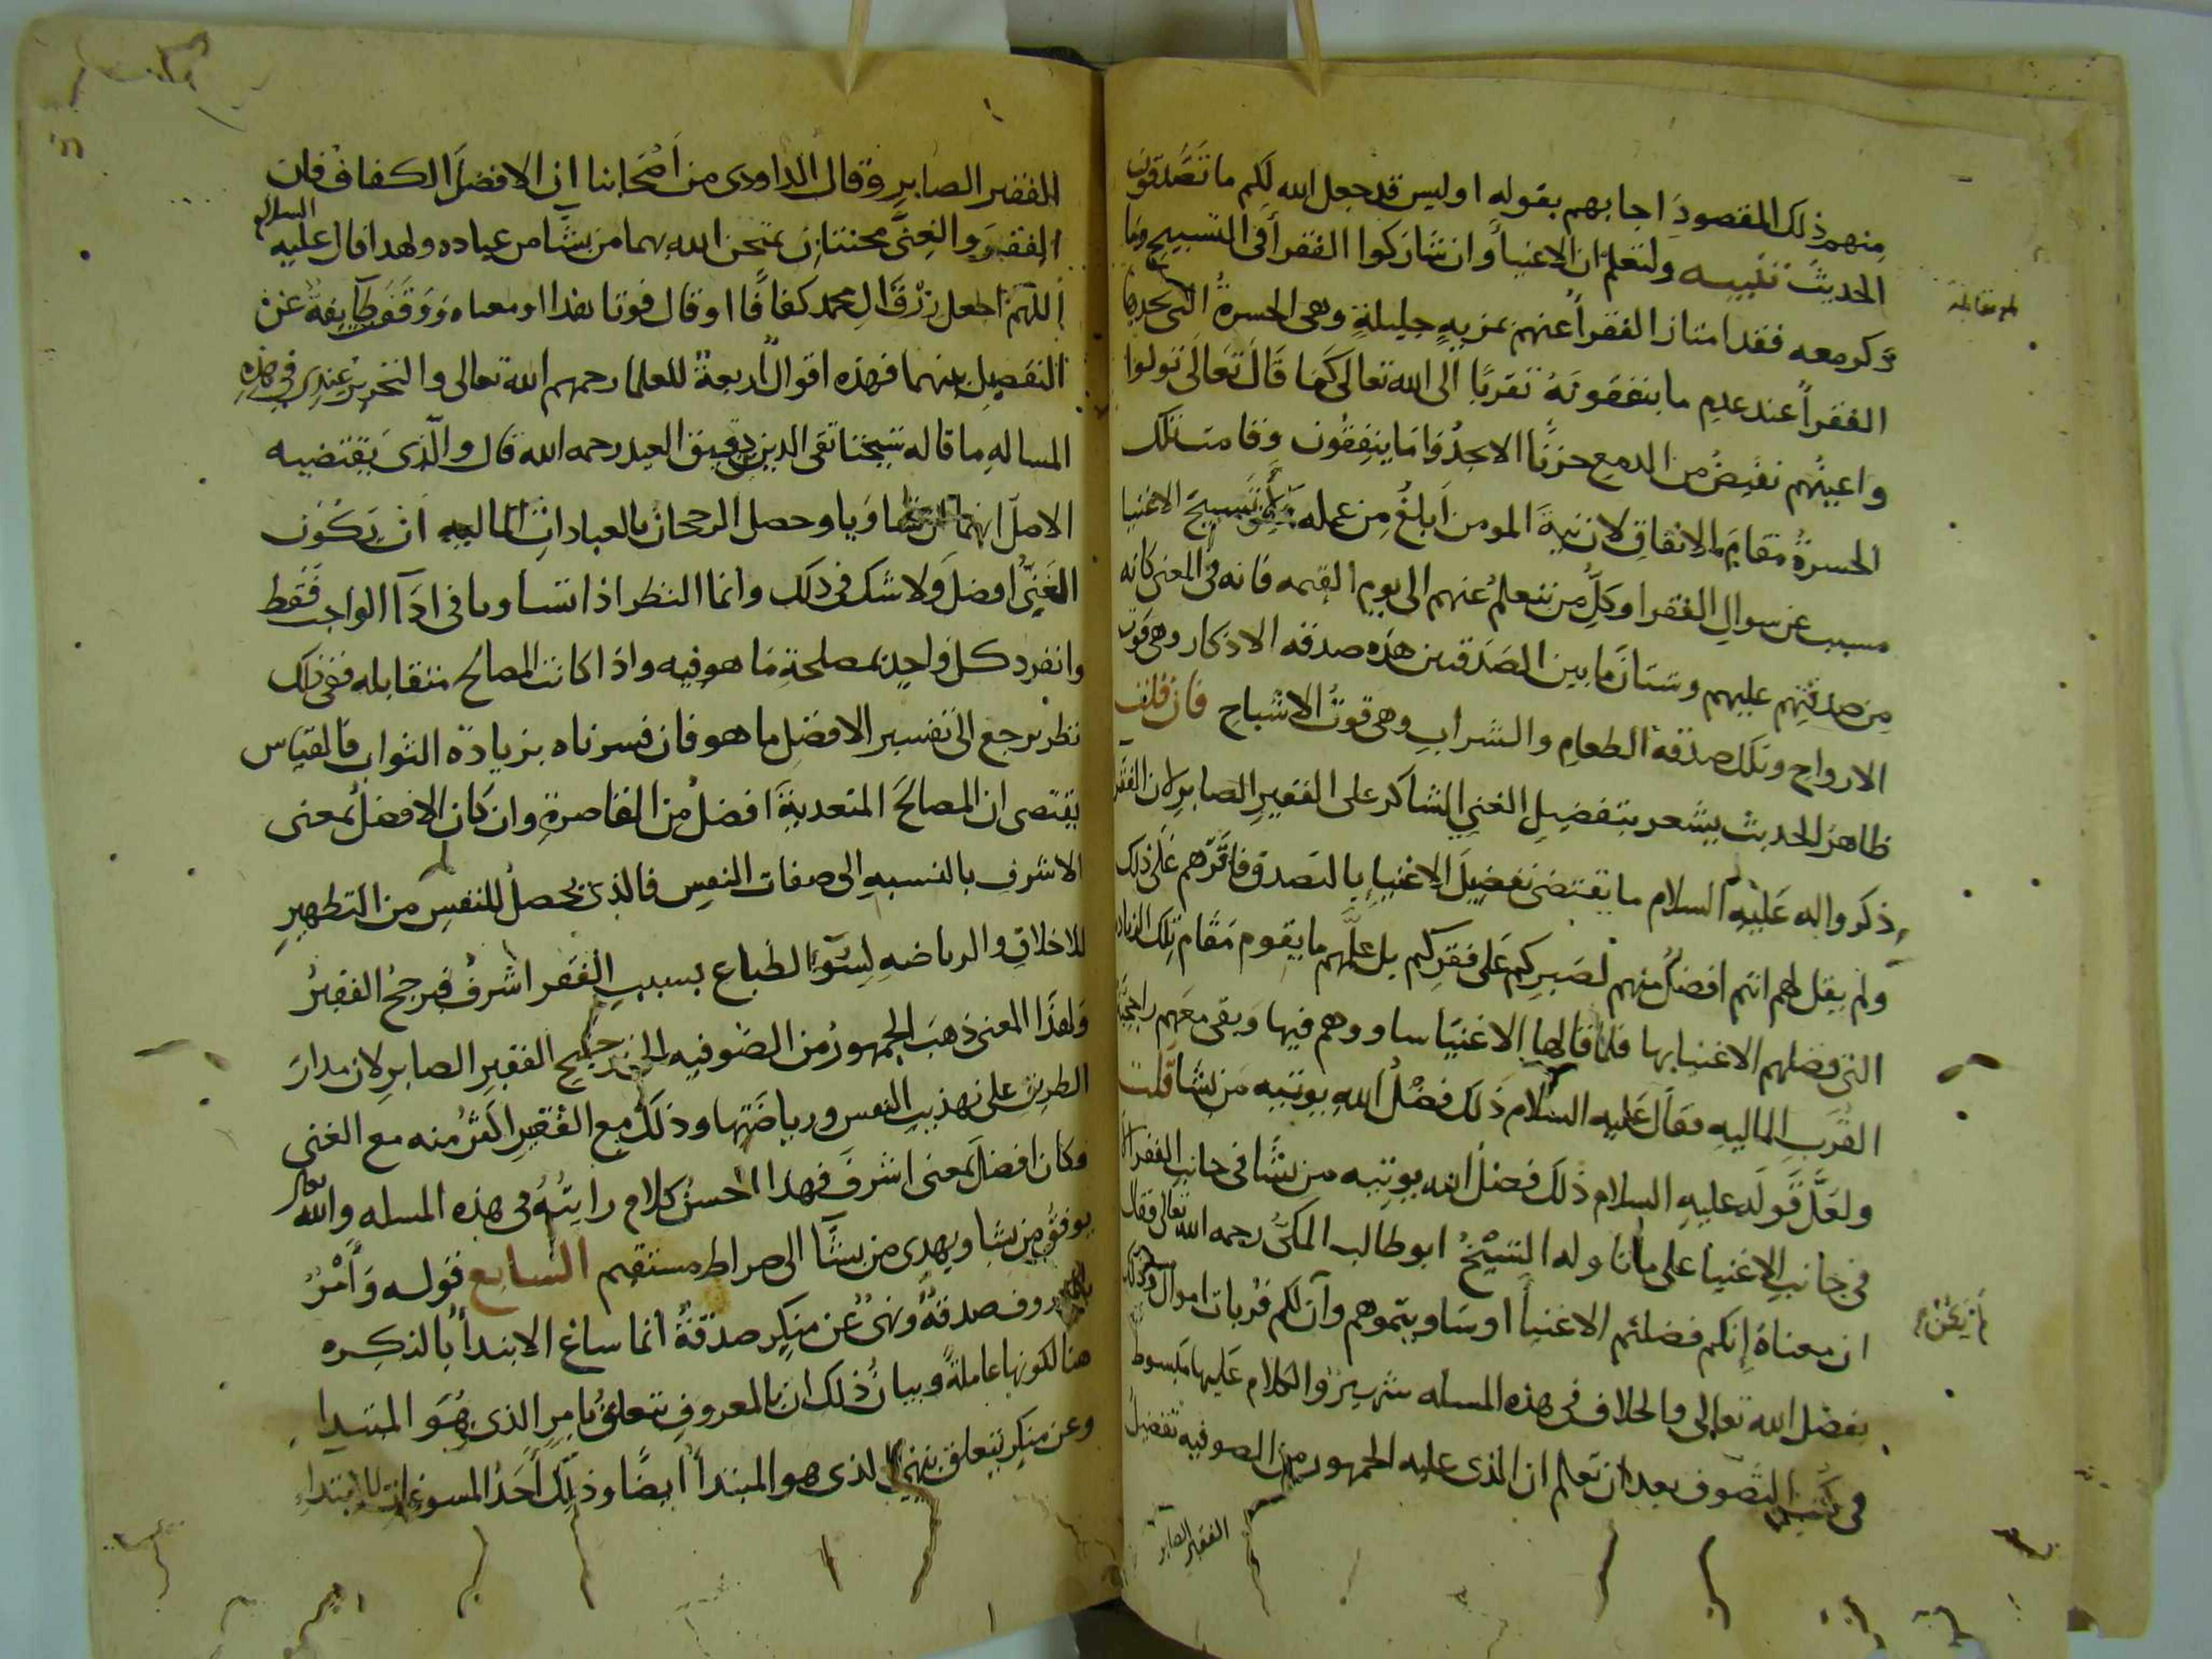 منهم ذلك المقصود اجابهم بقوله اوليس قد جعل الله لكم ما تصدقون
الحديث تنبيه ولتعلم ان الاغنيأ وان شاركوا الفقرأ فى التسبيح وما
ذكر معه فقد امتاز الفقرأ عنهم بمزيه جليلة وهى الحسرة التى يجدها
الفقرأ عند عدم ما ينفقونه تقربًا الى الله تعالى كما قال تعالى تولوا
واعينهم تفيض من الدمع حزنًا الا يجدوا ما ينفقون وقامت تلك
الحسرة مقام الانفاق لان نية المومن ابلغ من عمله تسبيح الاغنيا
مسبب عن سوال الفقرا وكل من يتعلم عنهم الى يوم القيمه فانه فى المعنى كانه
من صدقتهم عليهم وشتان ما بين الصدقتين هذه صدقه الاذكار وهى قوت
الارواح وتلك صدقة الطعام والشراب وهى قوت الاشباح فان قلت
ظاهر الحديث يشعر بتفضيل الغنى الشاكر على الفقير الصابر لان الفقرا
ذكروا له عليه السلام ما يقتضى تفضيل الاغنيا بالتصدق فاقرهم على ذلك
ولم يقل لهم انتم افضل منهم لصبركم على فقركم بل علمهم ما يقوم مقام تلك الزياده
التى فضلهم الاغنيا بها فلما قالها الاغنيا ساووهم فيها وبقى معهم راجحية
القرب الماليه فقال عليه السلام ذلك فضل الله يوتيه من يشا قلت
ولعل قوله عليه السلام ذلك فضل الله يوتيه من يشا فى جانب الفقرا لا
فى جانب الاغنيا على ما تاوله الشيخ ابو طالب المكى رحمه الله تعالى فقال
ان معناه انكم فضلتم الاغنيأ او ساويتموهم وان لكم قربات اموال وذلك
بفضل الله تعالى والخلاف فى هذه المسله شهير والكلام عليها مبسوط
فى كتب التصوف بعد ان تعلم ان الذى عليه الجمهور من الصوفيه تفضيل
الفقير الصابر
الفقير الصابر وقال الداودى من اصحابنا ان الافضل الكفاف فان
الفقر والغنى محنتان يمتحن الله بهما من يشا من عباده ولهذا قال عليه السلام
اللهم اجعل رزق ال محمد كفافًا او قال قوتا هذا او معناه ووقف طايفة عن
التفضيل بينهما فهذه اقوال اربعة للعلما رحمهم الله تعالى والتحرير عندى فى هذه
المساله ما قاله شيخنا تقى الدين بن دقيق العيد رحمه الله قال والذى يقتضيه
الاصل انهما ان تساويا وحصل الرجحان بالعبادات الماليه ان يكون
الغنى افضل ولا شك فى ذلك وانما النظر اذا تساويا فى ادآ الواجب فقط
وانفرد كل واحد بمصلحة ما هو فيه واذا كانت المصالح متقابله ففى ذلك
نظر يرجع الى تفسير الافضل ما هو فان فسرناه بزيادة الثواب فالقياس
يقتضى ان المصالح المتعدية افضل من القاصرة وان كان الافضل بمعنى
الاشرف بالنسبه الى صفات النفس فالذى يحصل للنفس من التطهير
للاخلاق والرياضه لسوٓء الطباع بسبب الفقر اشرف فيرجح الفقير
ولهذا المعنى ذهب الجمهور من الصوفيه الى ترجيح الفقير الصابر لان مدار
الطريق على تهذيب النفس ورياضتها وذلك مع الفقير اكثر منه مع الغنى
فكان افضل بمعنى اشرف فهذا احسن كلام رايته فى هذه المسله والله تعالى
يوفق من يشا ويهدى من يشآ الى صراط مستقيم السابع قوله وامر
بالمعروف صدقة ونهى عن منكر صدقة انما ساغ الابتدأ بالنكره
هنا لكونها عاملة وبيان ذلك ان بالمعروف يتعلق بامر الذى هو المبتدا
وعن منكر يتعلق بنهى الذى هو المبتدأ ايضًا وذلك احد المسوغات للابتداء